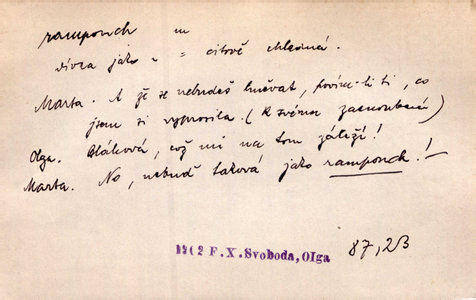 ramponch m
dívka jako „ = citově chladná.
Marta. A že se nebudeš hněvat, povím-li ti, co
jsem si vyprosila. (K svému zasnoubení)
Olga. Bláhová, což mi na tom záleží!
Marta. No, nebuď taková jako ramponch! –
1902 F. X. Svoboda, Olga 87, 2B